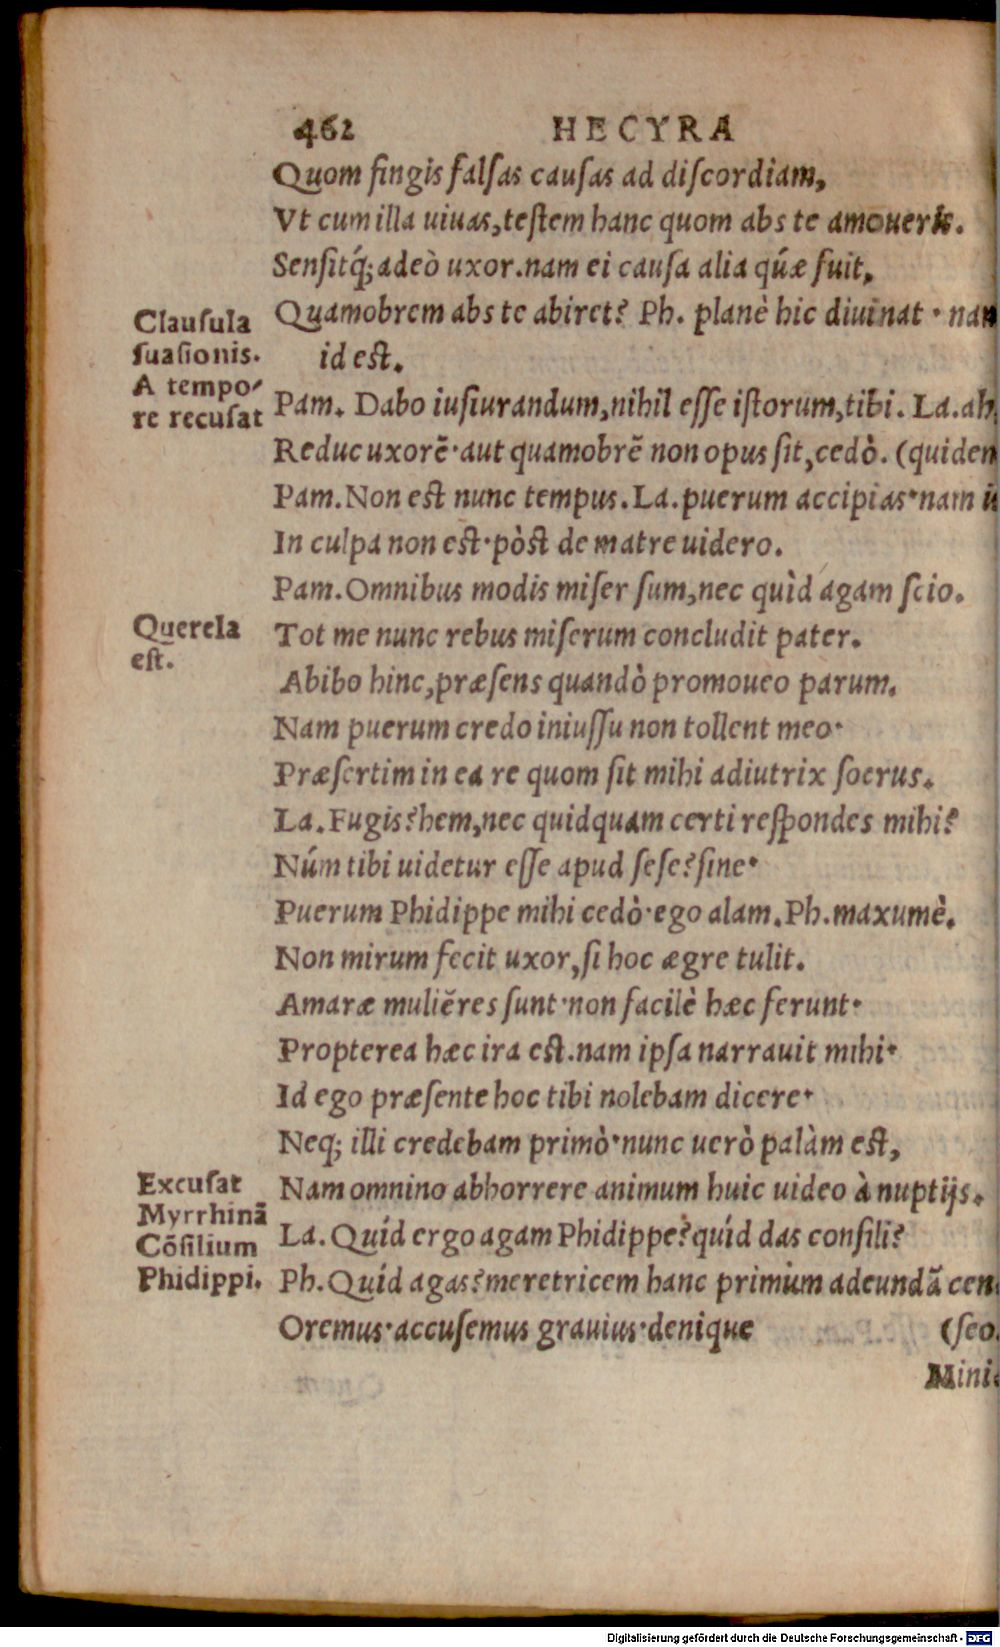 462 HECYRA
Quom fingis falſas cauſas ad diſcordiam,
Vt cum illa uiuas, teſtem hanc quom abs te amoueris.
Senſitq́; adeò uxor. nam ei cauſa alia quǽ fuit,
Quamobrem abs te abiret? Ph. planè hic diuinat · nam
id eſt.
Clauſula
ſuaſionis.
A tempo-
re recuſat
Pam. Dabo iuſiurandum, nihil eſſe iſtorum, tibi. La. ah,
Reduc uxorẽ · aut quamobrẽ non opus ſit, cedò. (quidem
Pam. Non eſt nunc tempus. La. puerum accipias · nam is
In culpa non eſt · pòſt de matre uidero.
Pam. Omnibus modis miſer ſum, nec quìd agam ſcio.
Querela
eſt.
Tot me nunc rebus miſerum concludit pater.
Abibo hinc, præſens quandò promoueo parum.
Nam puerum credo iniuſſu non tollent meo ·
Præſertim in ea re quom ſit mihi adiutrix ſocrus.
La. Fugis? hem, nec quidquam certi reſpondes mihi?
Núm tibi uidetur eſſe apud ſeſe? ſine ·
Puerum Phidippe mihi cedò · ego alam. Ph. maxumè.
Non mirum fecit uxor, ſi hoc ægre tulit.
Amaræ muliẽres ſunt · non facilè hæc ferunt ·
Propterea hæc ira eſt. nam ipſa narrauit mihi ·
Id ego præſente hoc tibi nolebam dicere ·
Neq; illi credebam primò · nunc uerò palàm eſt,
Nam omnino abhorrere animum huic uideo à nuptijs.
Excuſat
Myrrhinã
Cõſilium
Phidippi.
La. Quíd ergo agam Phidippe? quíd das conſili?
Ph. Quíd agas? meretricem hanc primùm adeundã cen-
Oremus · accuſemus grauius · denique (ſeo.
Mini-
Digitalisierung gefördert durch die Deutsche Forschungsgemeinschaft - DFG